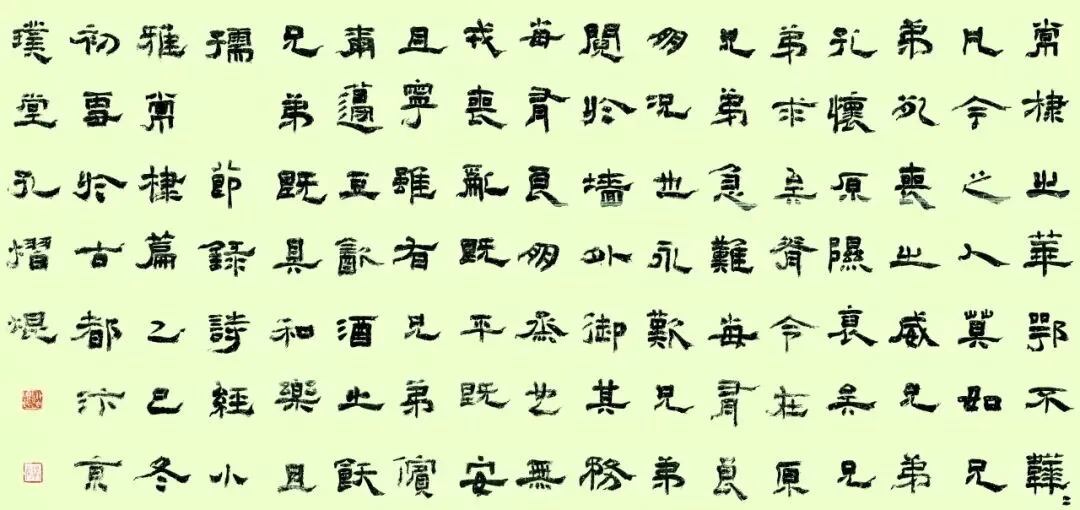 常棣之華鄂不韡〻
凡今之人莫如兄
弟死喪之威兄弟
孔懷原隰裒矣兄
弟求矣脊令在原
兄弟急難每有良
朋況也永歎兄弟
鬩於墻外御其務
每有良朋烝也無
戎喪亂既平既安
且寧雖有兄弟儐
爾籩豆飲酒之飫
兄弟既具和樂且
孺 節錄詩經小
雅常棣篇乙巳冬
初雪於古都汴京
璞堂孔熠焜